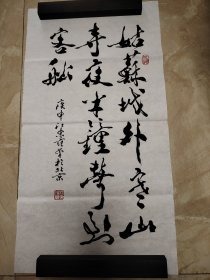 姑蘇城外寒山
寺夜半鐘聲到
客船
庚申 於北京